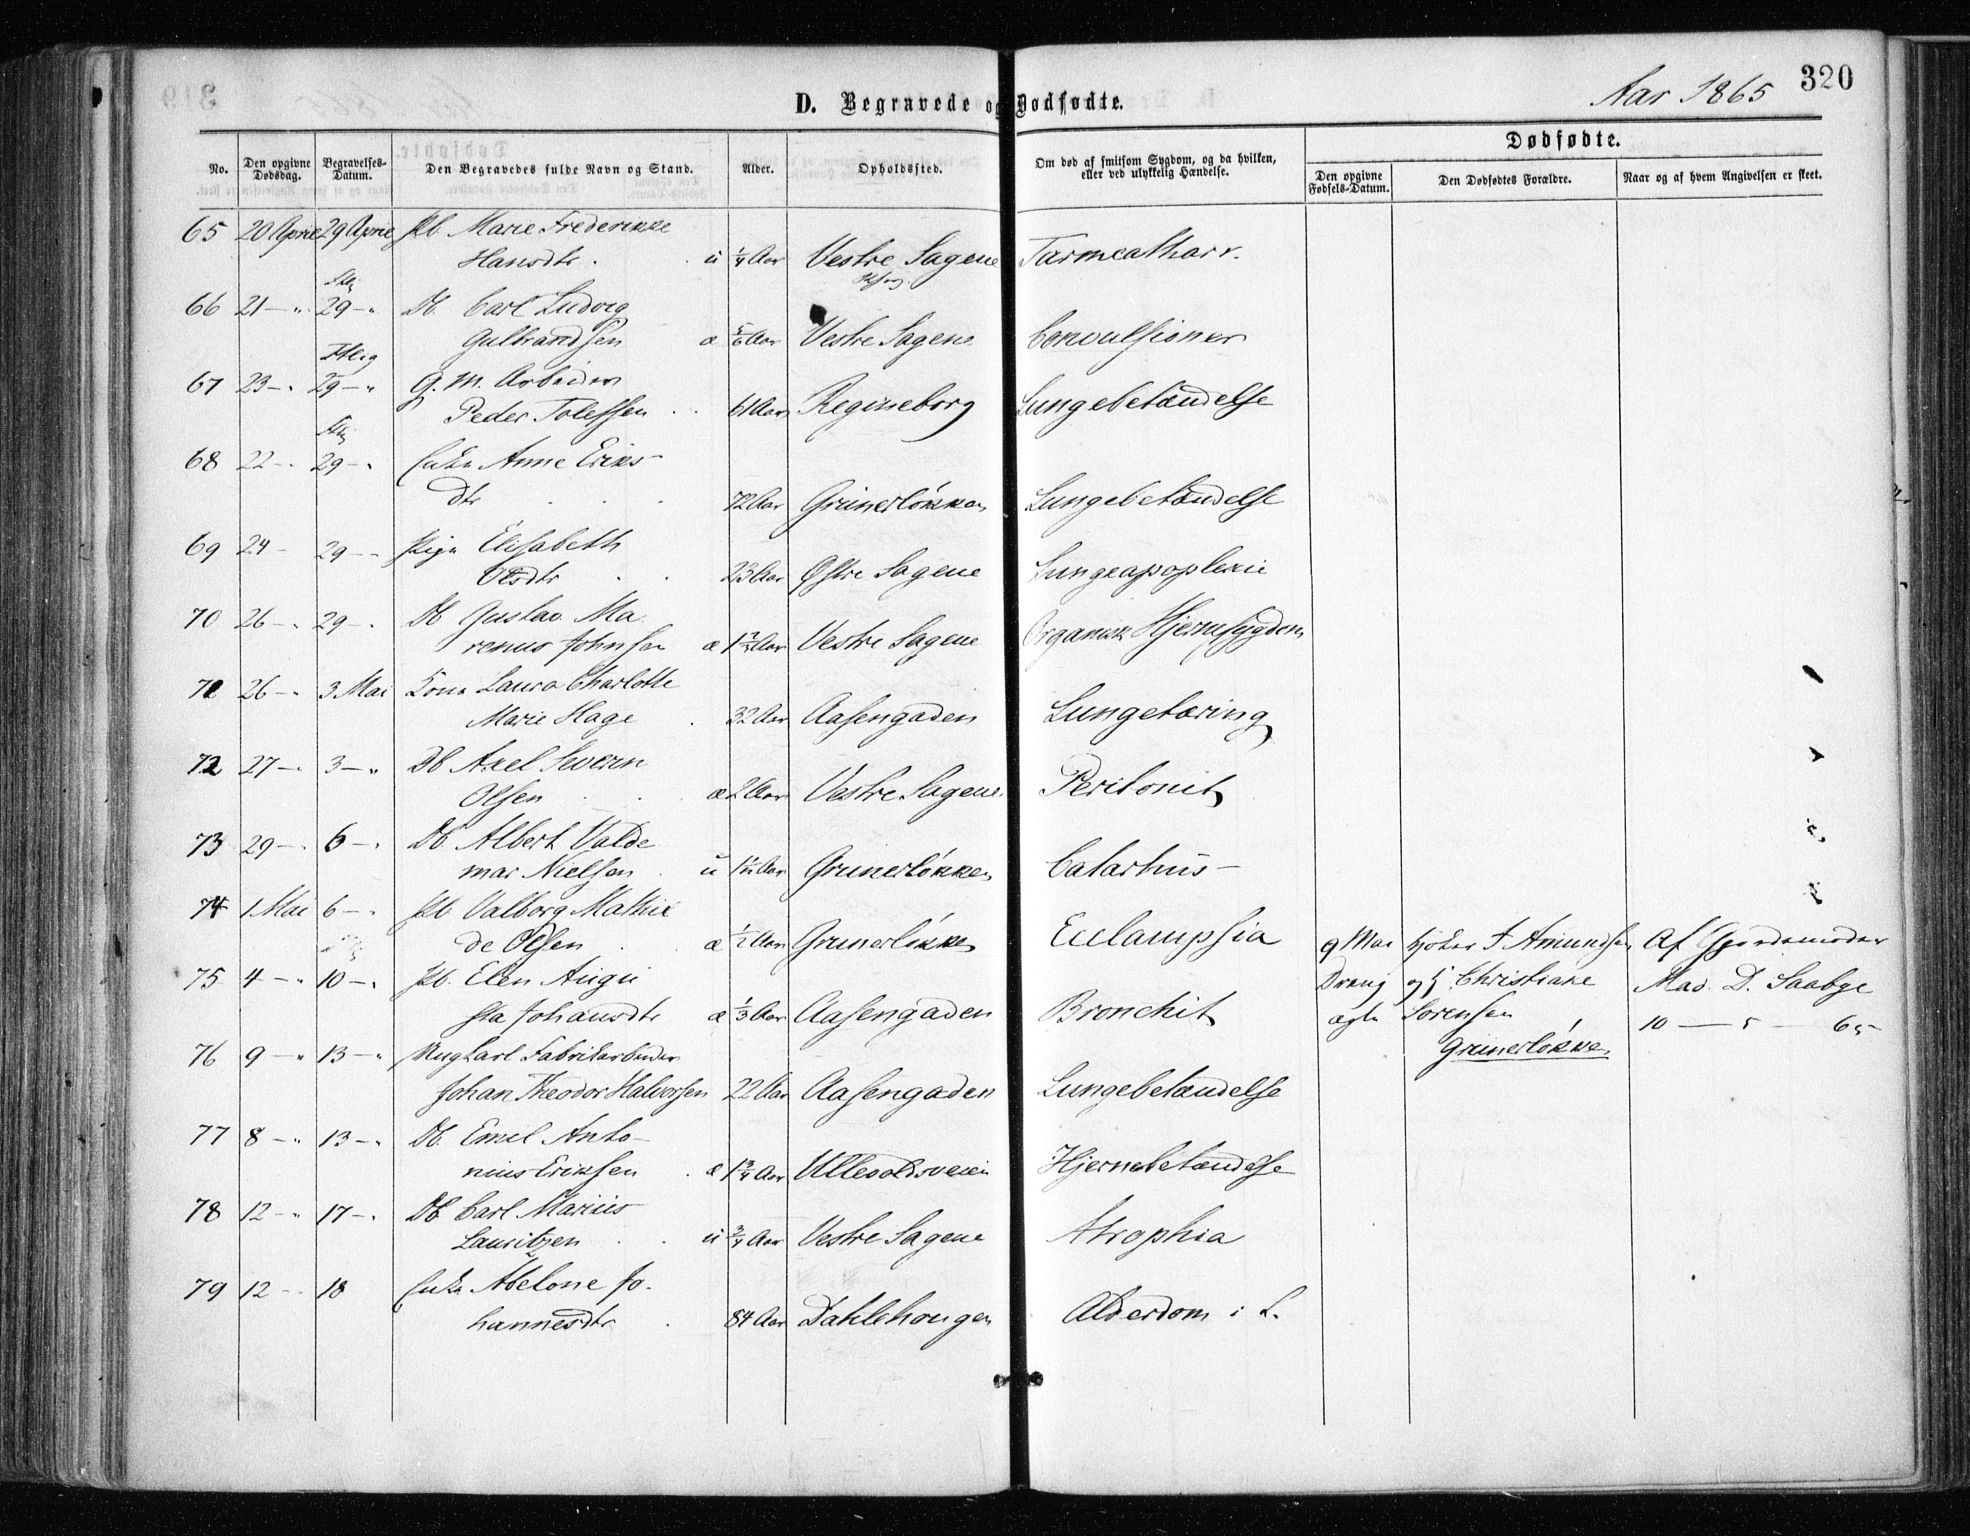 320
Aar 1865
D. Begravede og Dødfødte.
No. Den opgivne Dødsdag. Begravelses-Datum. Den Begravedes fulde Navn og Stand. Alder. Opholdssted. Om død af smitsom Sygdom, og da hvilken, eller ved ulykkelig Hændelse.
Dødfødte.
Den opgivne Fødsels-Datum. Den Dødfødtes Forældre. Naar og af hvem Angivelsen er skeet.
65 20 April 29 April Pb. Marie Frederikke
Hansdtr. u 1/4 Aar Vestre Sagene Tarmcatharr.
66 21 — " 29 — " Db. Carl Ludvig
Gulbrandsen æ 5/6 Aar Vestre Sagene Convulsioner
67 23 — " 29 — " G. M. Arbeider
Peder Tolefsen 61 Aar Regineborg Lungebetændelse
68 22 — " 29 — " Enke Anne Eriks-
dtr 72 Aar Grünerløkken Lungebetændelse
69 24 — 29 — Pige Elisabeth
Olsdtr 23 Aar Østre Sagene Lungeapoplexie
70 26 — " 29 — " Db Gustav Ma
renus Johnsen æ Aar Vestre Sagene Organisk Hjernesygdom
71 26 — " 3 Mai Kone Laura Charlotte
Marie Hage 32 Aar Aasengaden Lungetæring
72 27 — " 3 — " Db Axel Severin
Olsen æ 2 Aar Vestre Sagene Peritonit
73 29 — " 6 — " Db. Albert Valde
mar Nielsen u Aar Grünerløkken Catarhus —
74 1 Mai 6 — " Pb. Valborg Mathil
de Olsen æ 1/2 Aar Grünerløkken Eclampsia 9 Mai F Amundsen Af Gjordemoder
75 4 — " 10 — " Pb. Elen Augu Dreng og H. Christiane Mad. D. Saabye
sta Johansdtr æ 1/3 Aar Aasengaden Bronchit ægte Sørensen 10 — 5 — 65
76 9 — " 13 — " Ungkarl Fabrikarbeider Grünerløkken
Johan Theodor Halvorsen 22 Aar Aasengaden Lungebetændelse
77 8 — " 13 — " Db. Emil Anto-
nius Eriksen æ 1 3/4 Aar Ullevoldsveien Hjernebetændelse
78 12 — " 17 — " Db Carl Marius
Lauritzen u 3/4 Aar Vestre Sagene Atrophia
79 12 — " 18 Enke Abelone Jo-
hannesdtr 84 Aar Dahlehougen Alderdom i L.